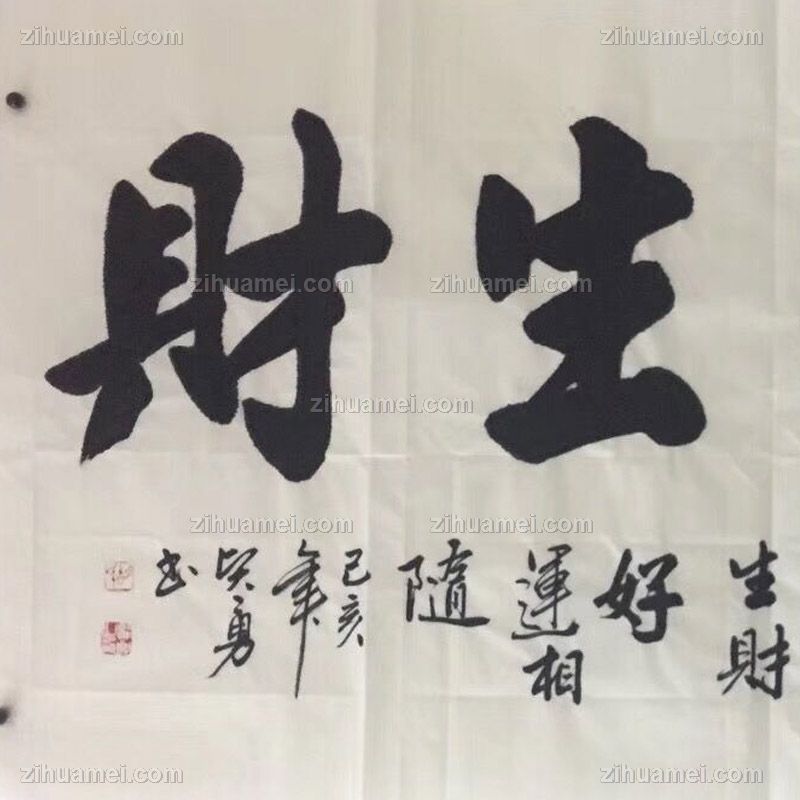 zihuamei.com
zihuamei.com
生財
zihuamei.com
zihuamei.com
zihuamei.com
zihuamei.com
zihuamei.com
生財
好
運相
隨
己亥
年
勇
书
zihuamei.com
zihuamei.com